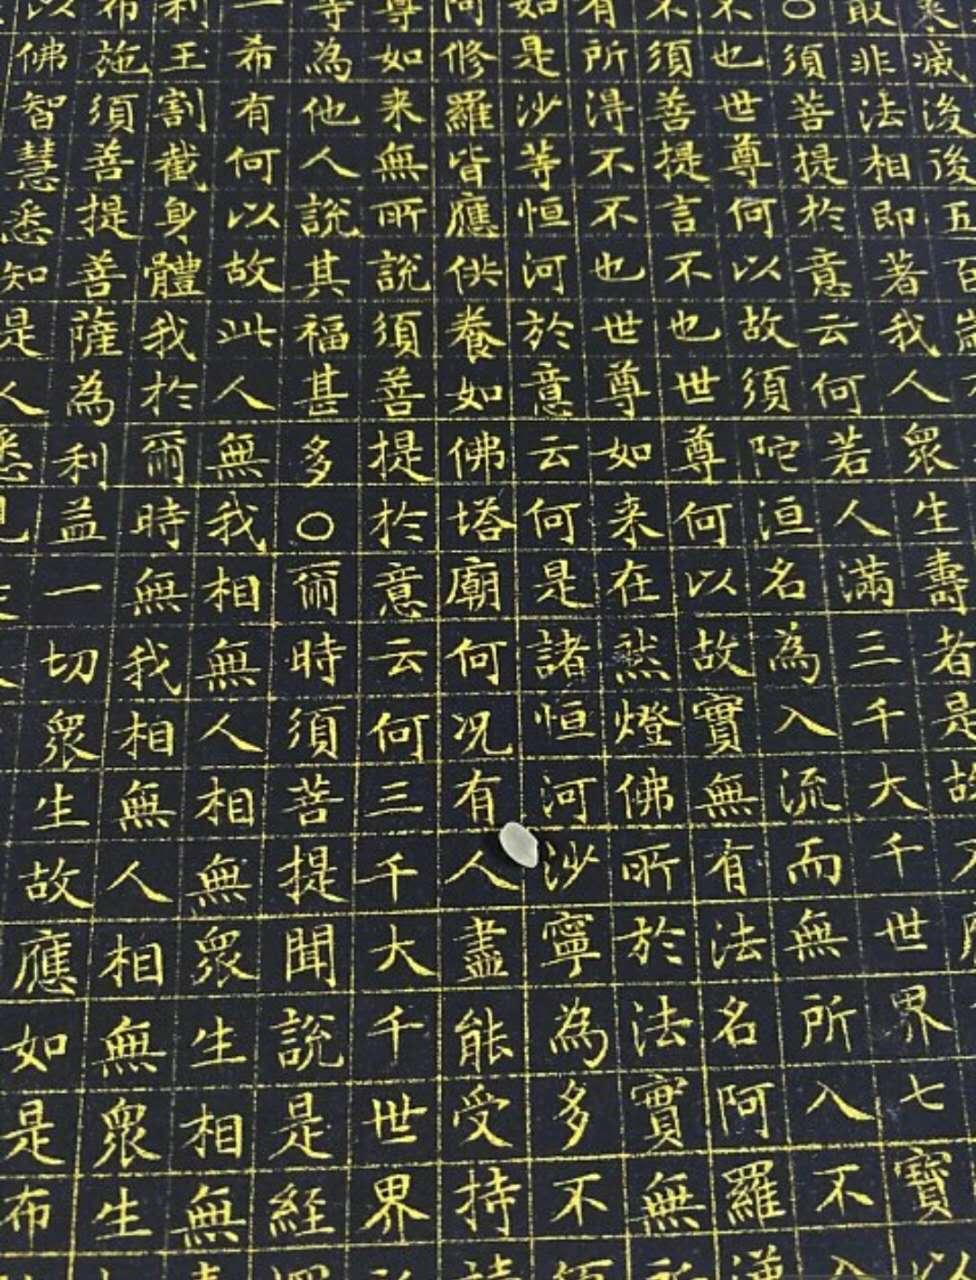 来滅後後五百歲
取非法相即著我人眾生壽者是故不應
○須菩提於意云何若人滿三千大千世界七寶以
不也世尊何以故須陀洹名為入流而無所入不入
不須菩提言不也世尊何以故實無有法名阿羅漢
有所得不不也世尊如来在然燈佛所於法實無所
如是沙等恒河於意云何是諸恒河沙寧為多不須
阿修羅皆應供養如佛塔廟何況有人盡能受持讀
尊如来無所說須菩提於意云何三千大千世界所
等為他人說其福甚多○爾時須菩提聞說是經深
一希有何以故此人無我相無人相無眾生相無壽
利王割截身體我於爾時無我相無人相無眾生
布施須菩提菩薩為利益一切眾生故應如是布
以佛智慧悉知是人悉見